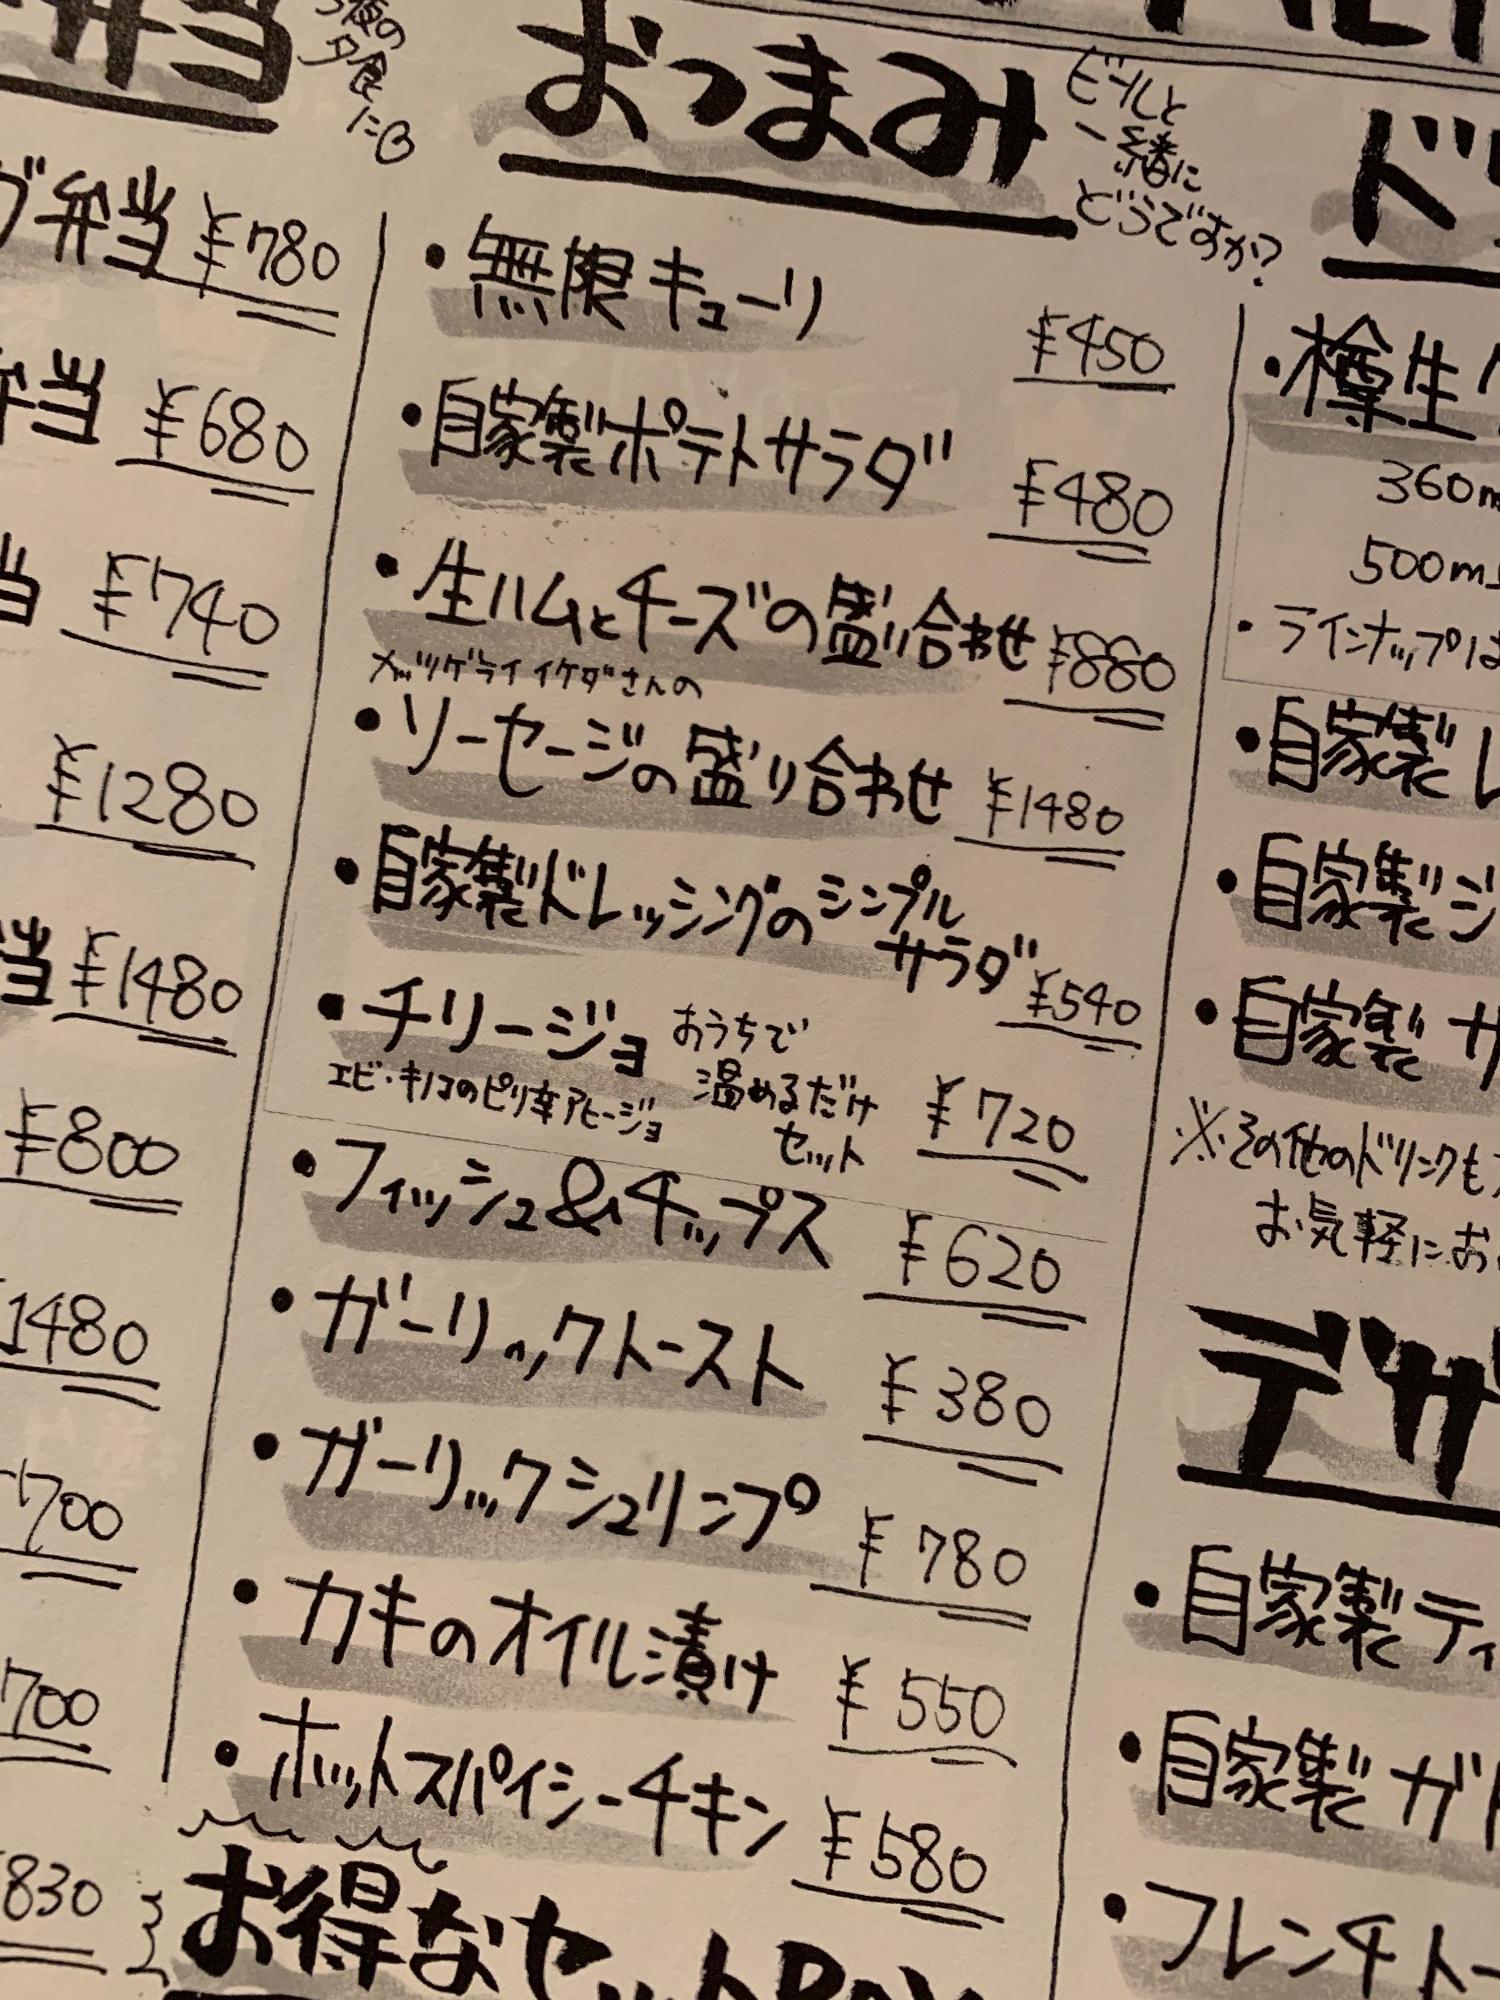 弁当
夕食に
弁当 ¥780
弁当 ¥680
当 ¥740
¥1280
当 ¥1480
¥800
1480
700
700
830
おつまみ
ビールと
一緒に
どうですか?
・無限キューリ
¥450
・自家製ポテトサラダ
¥480
・生ハムとチーズの盛り合わせ ¥880
メッツゲライイケダさんの
・ソーセージの盛り合わせ ¥1480
・自家製ドレッシングのシンプル
サラダ ¥540
・チリージョ おうちで
エビ・キノコのピリ辛アヒージョ 温めるだけ
セット ¥720
・フィッシュ&チップス ¥620
・ガーリックトースト ¥380
・ガーリックシュリンプ ¥780
・カキのオイル漬け ¥550
・ホットスパイシーチキン ¥580
お得なセット
ド
・樽生
360m
500mL
・ラインナップは
・自家製レ
・自家製ジ
・自家製サ
※その他のドリンクも
お気軽にお
デザ
・自家製ティ
・自家製ガト
・フレンチトー